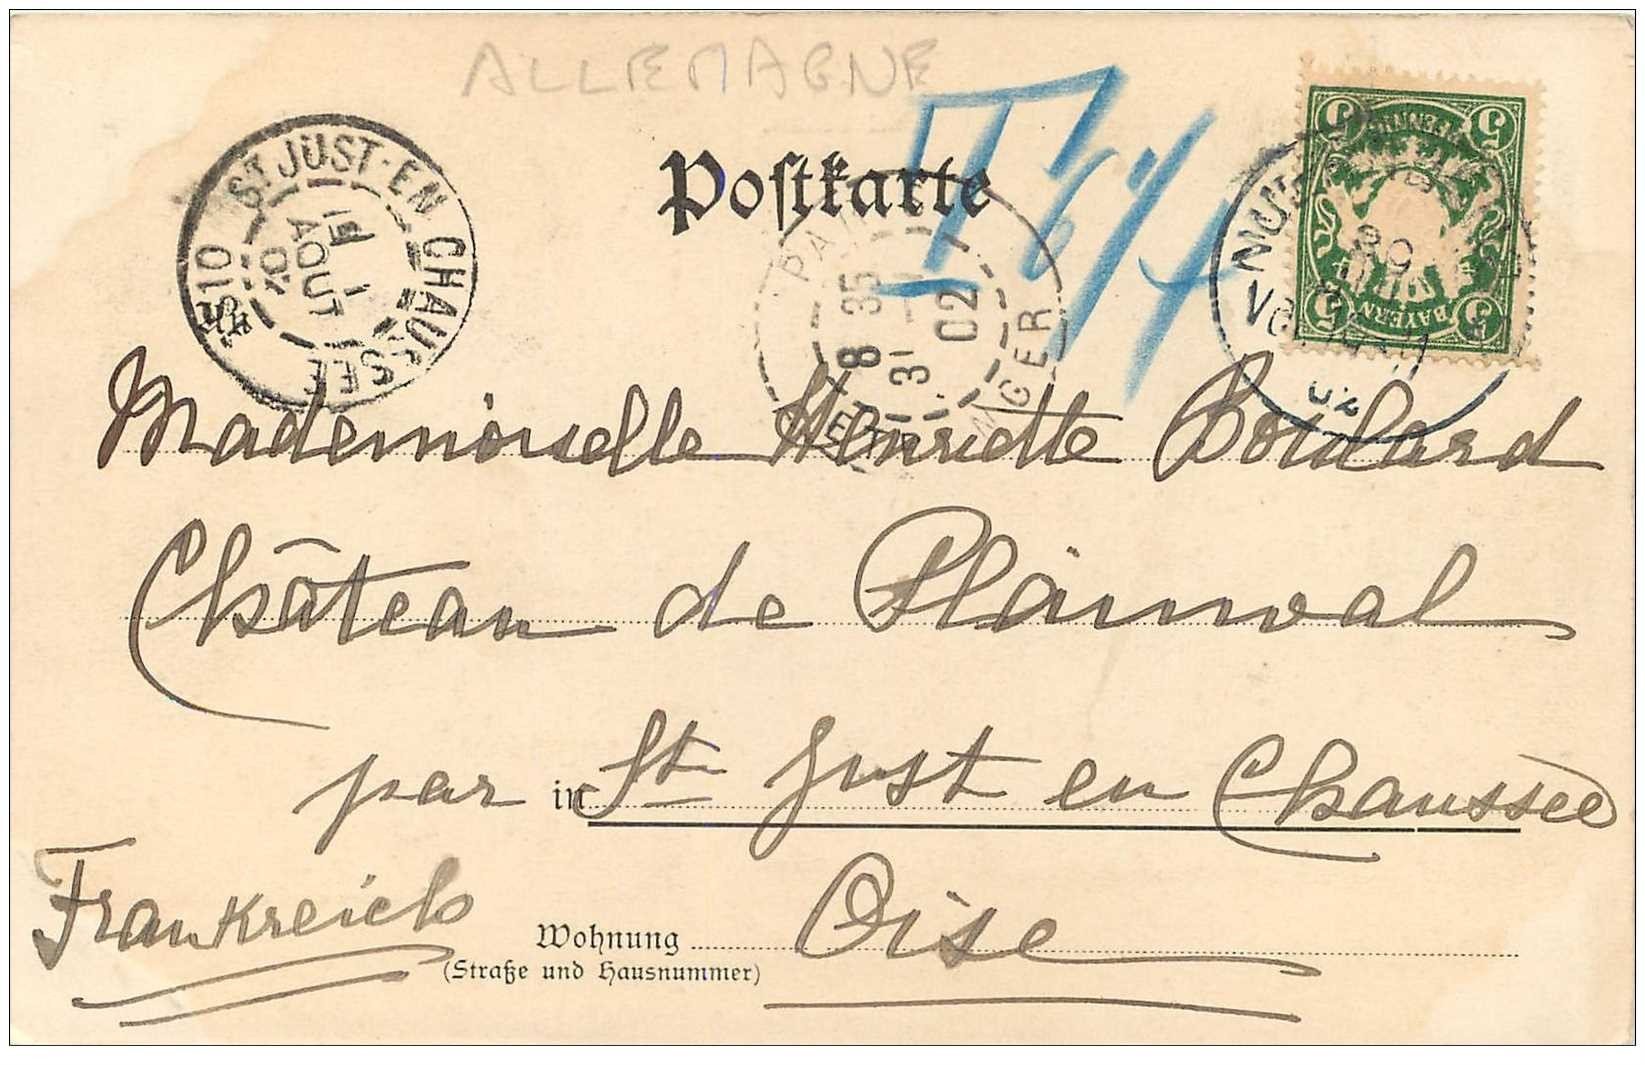 ALLEMAGNE
Postkarte
T
5 5
BAYERN
5 5
ST JUST-EN CHAUSSEE
1E
1
AOUT
02
8 35
31
02
ETRANGER
02
Mademoiselle Henriette Boulard
Château de Plainval
par in St Just en Chaussée
Frankreich
Oise
Wohnung
(Straße und Hausnummer)